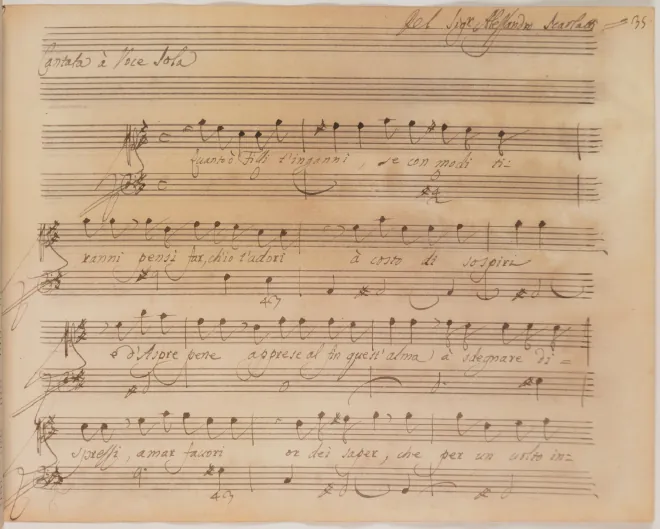 Del Sigr. Alessandro Scarlatti 35
Cantata à Voce Sola
Quanto ò Filli t'inganni, se con modi ti-
ranni pensi far, ch'io t'adori à costo di sospiri
d'Aspre pene apprese al fin quest'alma à sdegnare di=
spressi, amar favori or dei saper, che per un volto in=